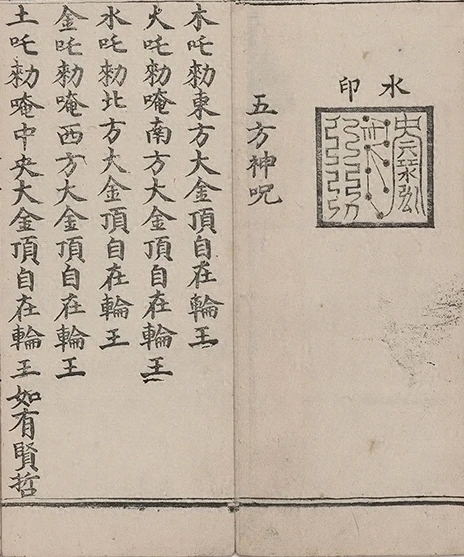 水印
五方神呪
木吒勑東方大金頂自在輪王
火吒勑唵南方大金頂自在輪王
水吒勑北方大金頂自在輪王
金吒勑唵西方大金頂自在輪王
土吒勑唵中央大金頂自在輪王如有賢哲